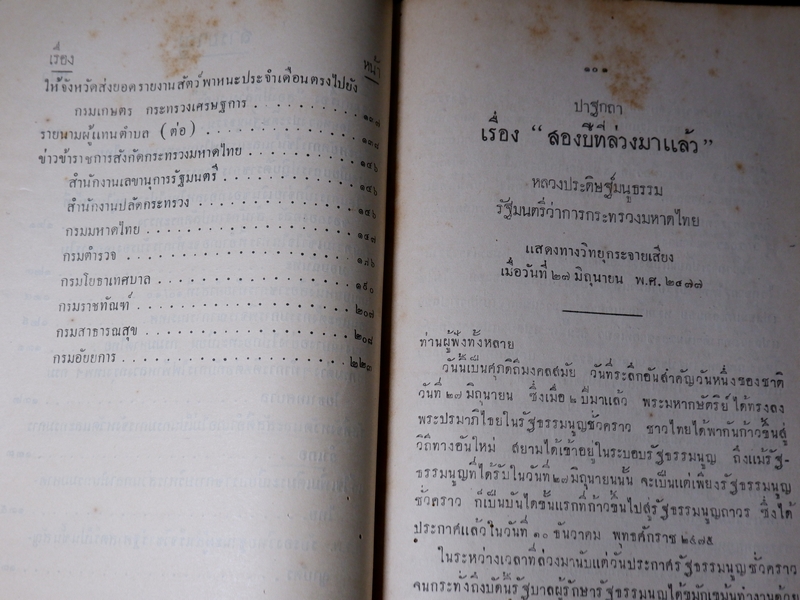 เรื่อง หน้า
ให้จังหวัดส่งยอดรายงานสัตว์พาหนะประจำเดือนตรงไปยัง
กรมเกษตร กระทรวงเศรษฐการ
รายนามผู้แทนตำบล (ต่อ)
ข่าวข้าราชการสังกัดกระทรวงมหาดไทย ๑๔๖
สำนักงานเลขานุการรัฐมนตรี ๑๔๖
สำนักงานปลัดกระทรวง ๑๔๖
กรมมหาดไทย ๑๔๗
กรมตำรวจ ๑๗๖
กรมโยธาเทศบาล ๑๙๐
กรมราชทัณฑ์ ๒๐๗
กรมสาธารณสุข ๒๐๘
กรมอัยยการ ๒๒๓
๑๐๑
ปาฐกถา
เรื่อง “สองปีที่ล่วงมาแล้ว”
หลวงประดิษฐ์มนูธรรม
รัฐมนตรีว่าการกระทรวงมหาดไทย
แสดงทางวิทยุกระจายเสียง
เมื่อวันที่ ๒๗ มิถุนายน พ.ศ. ๒๔๗๗
ท่านผู้ฟังทั้งหลาย
วันนี้เป็นศุภดิถีมงคลสมัย วันที่ระลึกอันสำคัญวันหนึ่งของชาติ
วันที่ ๒๗ มิถุนายน ซึ่งเมื่อ ๒ ปีมาแล้ว พระมหากษัตริย์ได้ทรงลง
พระปรมาภิไธยในรัฐธรรมนูญชั่วคราว ชาวไทยได้พากันก้าวขึ้นสู่
วิถีทางอันใหม่ สยามได้เข้าอยู่ในระบอบรัฐธรรมนูญ ถึงแม้รัฐ-
ธรรมนูญที่ได้รับในวันที่ ๒๗ มิถุนายนนั้น จะเป็นแต่เพียงรัฐธรรมนูญ
ชั่วคราว ก็เป็นบันไดขั้นแรกที่ก้าวขึ้นไปสู่รัฐธรรมนูญถาวร ซึ่งได้
ประกาศแล้วในวันที่ ๑๐ ธันวาคม พุทธศักราช ๒๔๗๕
ในระหว่างเวลาที่ล่วงมานับแต่วันประกาศรัฐธรรมนูญชั่วคราว
จนกระทั่งถึงบัดนี้รัฐบาลผู้รักษารัฐธรรมนูญได้ขมักเขม้นทำงานด้วย